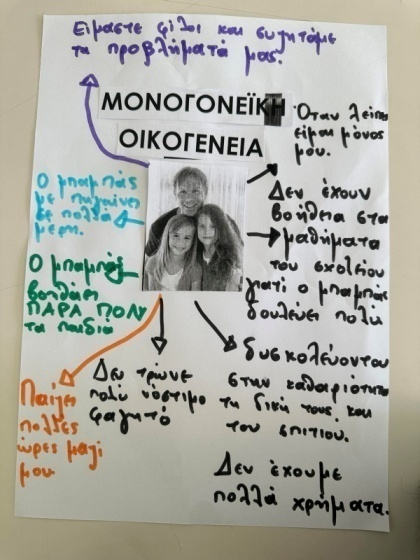 Είμαστε φίλοι και συζητάμε
τα προβλήματά μας.
ΜΟΝΟΓΟΝΕΪΚΗ
ΟΙΚΟΓΕΝΕΙΑ
Όταν λείπει
είμαι μόνος
μου.
Ο μπαμπάς
με πηγαίνει
σε πολλά
μέρη.
Δεν έχουν
βοήθεια στα
μαθήματα
του σχολείου
γιατί ο μπαμπάς
δουλεύει πολύ
Ο μπαμπάς
βοηθάει
ΠΑΡΑ ΠΟΛΥ
τα παιδιά
Παίζει
πολλές
ώρες μαζί
μου.
Δεν τρώνε
πολύ νόστιμο
φαγητό
δυσκολεύονται
στην καθαριότητα
τη δική τους και
του σπιτιού.
Δεν έχουμε
πολλά χρήματα.